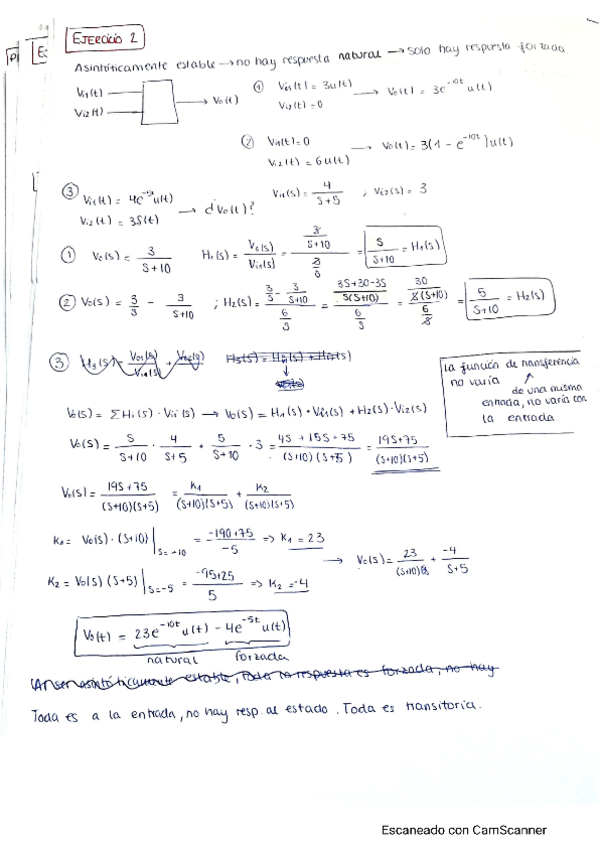 EJERCICIO 2
Asintóticamente estable → no hay respuesta natural → solo hay respuesta forzada
Vi1(t) → Vo(t)
Vi2(t)
① Vi1(t) = 3u(t) → Vo(t) = 3e^-10t u(t)
Vi2(t) = 0
② Vi1(t) = 0 → Vo(t) = 3(1 - e^-10t)u(t)
Vi2(t) = 6u(t)
③ Vi1(t) = 4e^-5t u(t) → ¿Vo(t)? Vi1(s) = 4/(S+5) ; Vi2(s) = 3
Vi2(t) = 3δ(t)
① Vo(s) = 3/(S+10) H1(s) = Vo(s)/Vi1(s) = (3/(S+10))/(3/S) = S/(S+10) = H1(s)
② Vo(s) = 3/S - 3/(S+10) ; H2(s) = (3/S - 3/(S+10))/(6/S) = ((3S+30-3S)/(S(S+10)))/(6/S) = (30/(S(S+10)))/(6/S) = 5/(S+10) = H2(s)
③
La función de transferencia
no varía
de una misma
entrada, no varía con
la entrada
Vo(s) = ΣHi(s)·Vii(s) → Vo(s) = H1(s)·Vi1(s) + H2(s)·Vi2(s)
Vo(s) = S/(S+10) · 4/(S+5) + 5/(S+10) · 3 = (4S + 15S + 75)/((S+10)(S+5)) = (19S+75)/((S+10)(S+5))
Vo(s) = (19S+75)/((S+10)(S+5)) = K1/((S+10)(S+5)) + K2/((S+10)(S+5))
K1 = Vo(s)·(S+10)|S=-10 = (-190+75)/-5 => K1 = 23
→ Vo(s) = 23/(S+10) + -4/(S+5)
K2 = Vo(s)(S+5)|S=-5 = (-95+25)/5 => K2 = -4
Vo(t) = 23e^-10t u(t) - 4e^-5t u(t)
natural forzada
Toda es a la entrada, no hay resp. al estado. Toda es transitoria.
Escaneado con CamScanner